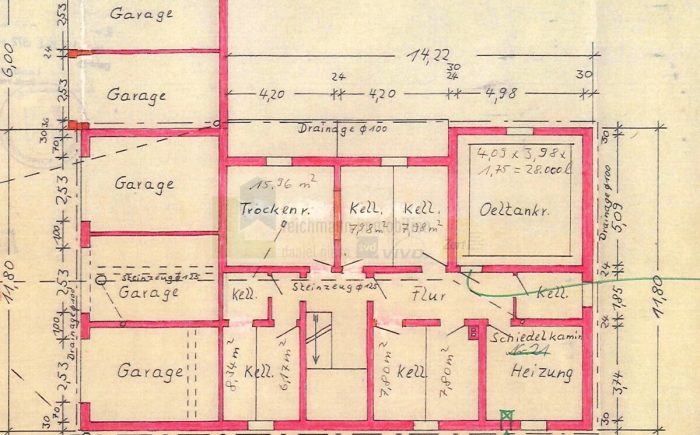 Garage
Garage
14,22
24
30
24
30
4,20
4,20
4,98
Drainage ϕ100
4,09 x 3,98 x
1,75 = 28.000 l
Garage
15,96 m²
Trockenr.
Kell.
7,98 m²
Kell.
7,98 m²
Oeltankr.
Steinzeug ϕ125
Garage
Steinzeug ϕ125
Kell.
Flur
Kell.
Schiedelkamin
Garage
8,34 m²
Kell.
6,17 m²
7,80 m²
Kell.
7,80 m²
Heizung
6,00
11,80
2,53
24
2,53
30
2,53
100
2,53
100
2,53
30
70
Drainage ϕ100
Drainage ϕ100
30
5,09
24
1,85
24
3,74
30
11,80